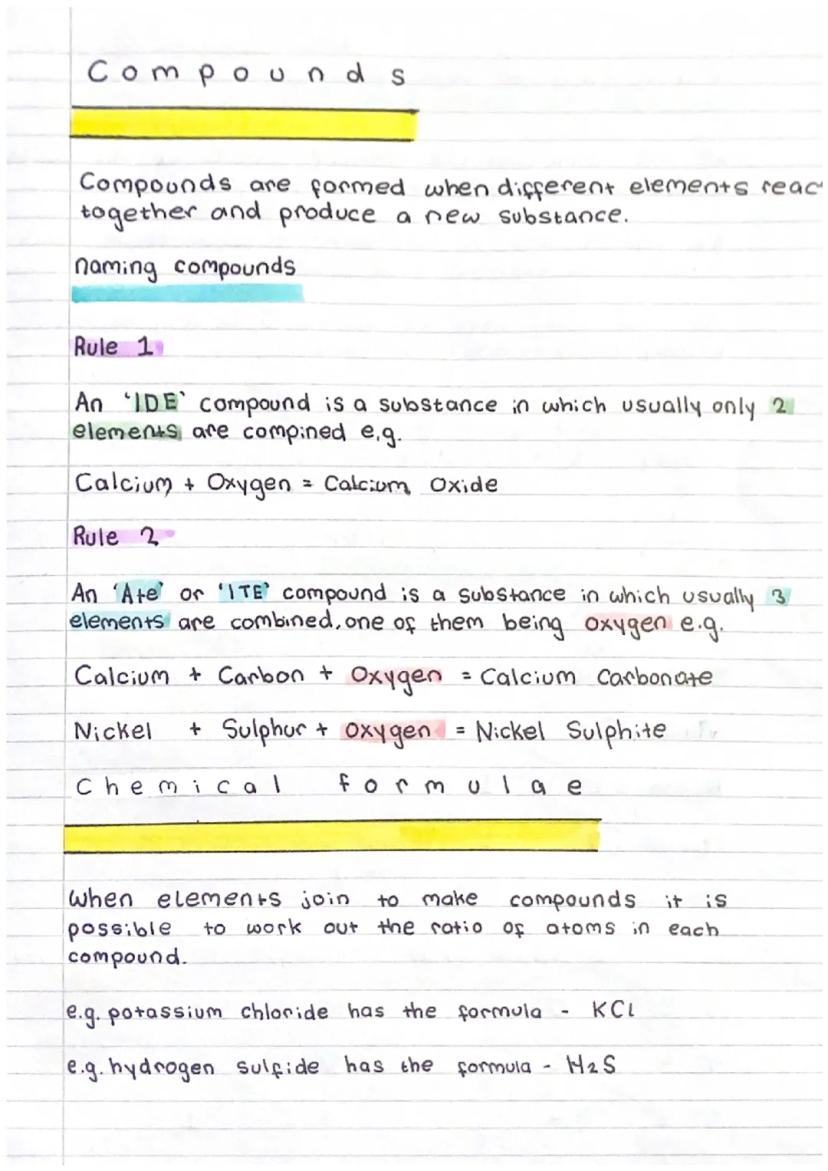 Compounds
Compounds are formed when different elements reac
together and produce a new substance.
naming compounds
Rule 1
An 'IDE' compound is a substance in which usually only 2
elements are compined e.g.
Calcium + Oxygen = Calcium Oxide
Rule 2
An 'Ate' or 'ITE' compound is a substance in which usually 3
elements are combined, one of them being oxygen e.g.
Calcium + Carbon + Oxygen = Calcium Carbonate
Nickel + Sulphur + oxygen = Nickel Sulphite
Chemical formulae
When elements join to make compounds it is
possible to work out the ratio of atoms in each
compound.
e.g. potassium chloride has the formula - KCl
e.g. hydrogen sulfide has the formula - H2S